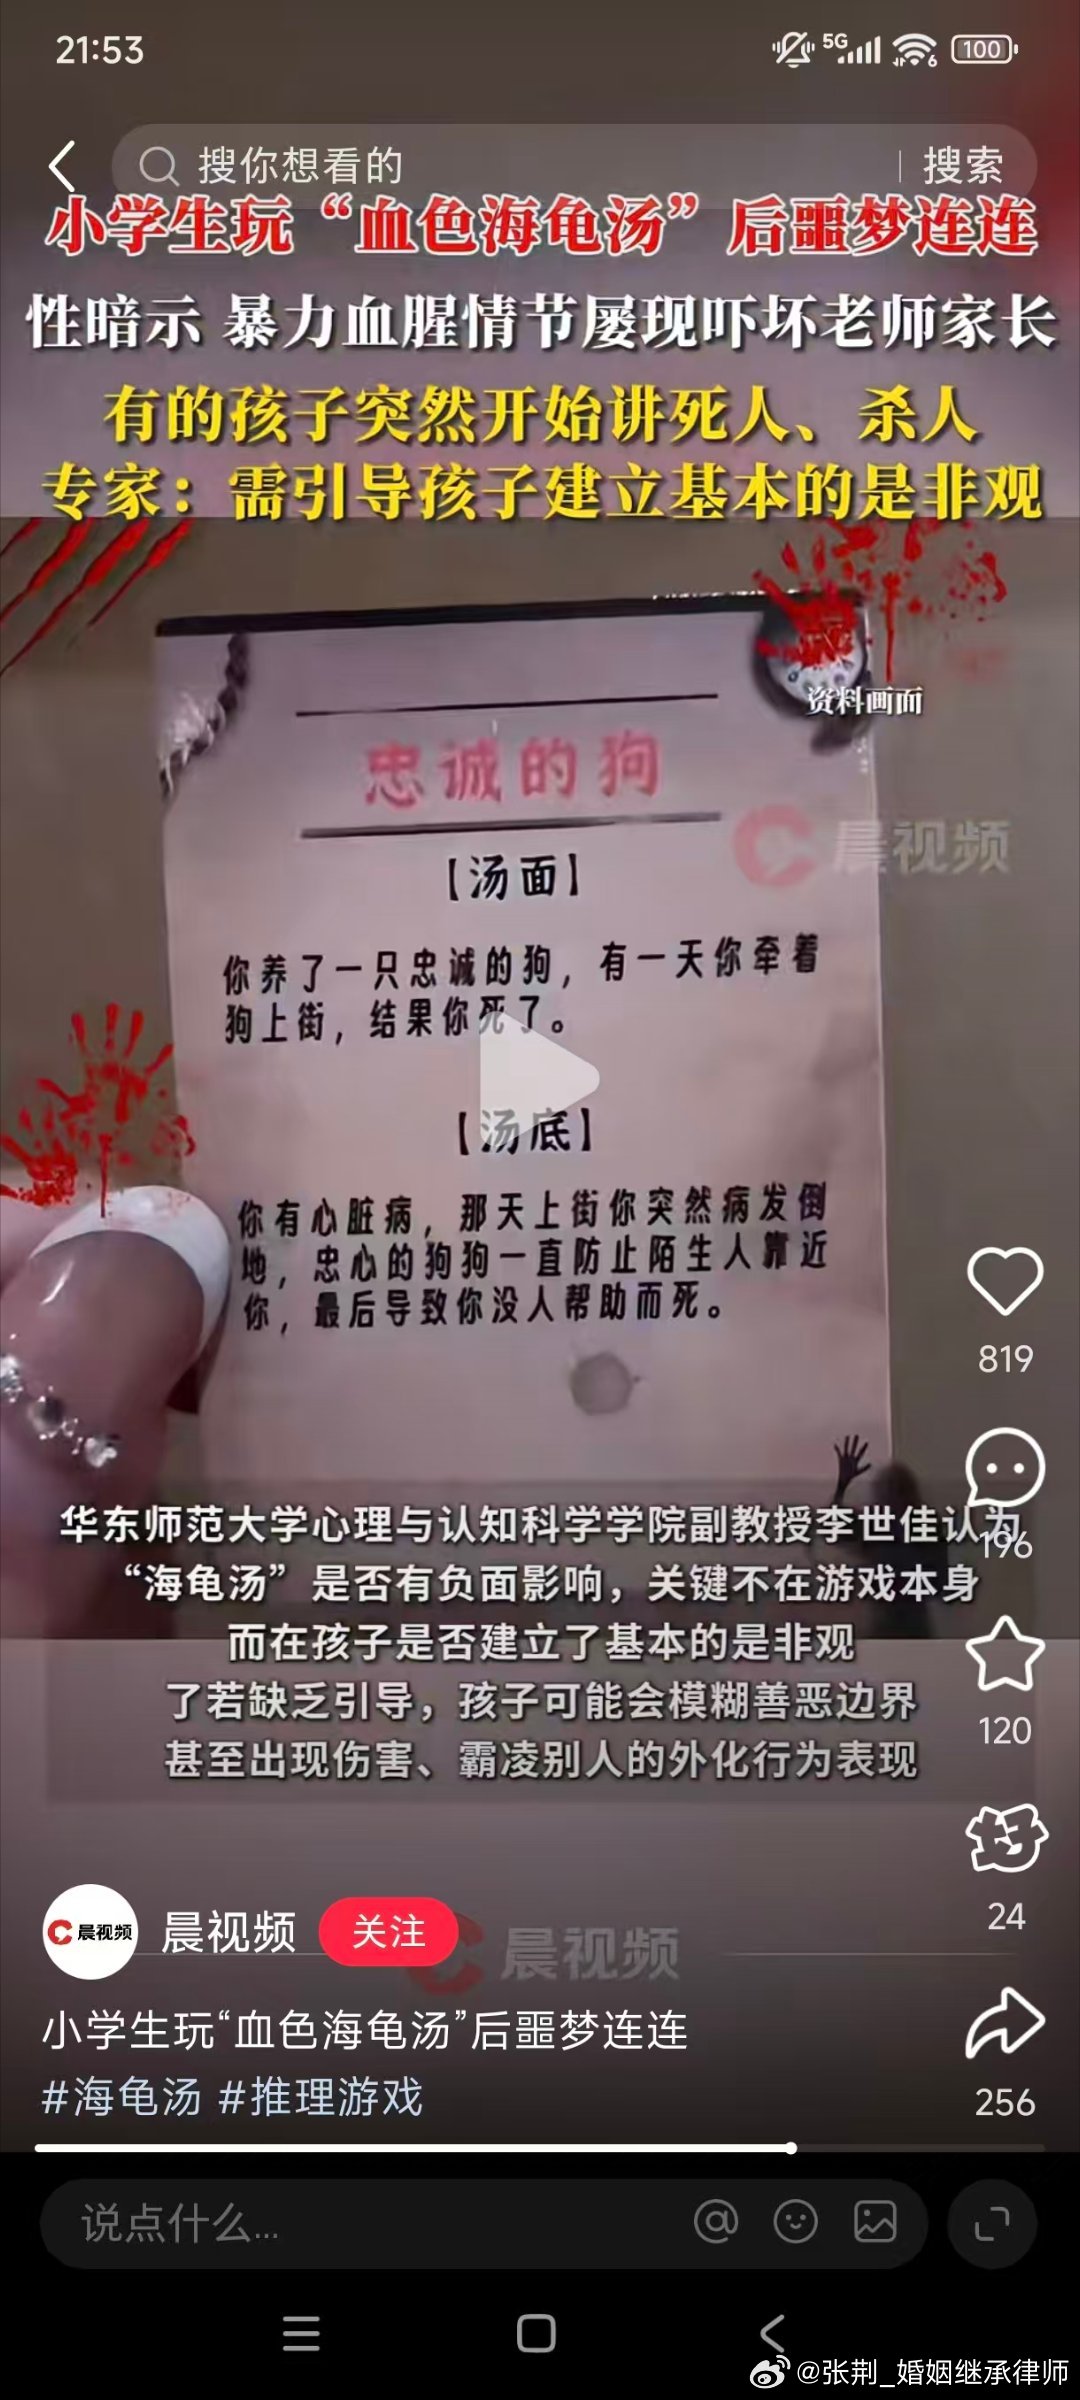 21:53
5G
6
100
搜你想看的
搜索
小学生玩“血色海龟汤”后噩梦连连
性暗示 暴力血腥情节屡现吓坏老师家长
有的孩子突然开始讲死人、杀人
专家：需引导孩子建立基本的是非观
资料画面
忠诚的狗
晨视频
【汤面】
你养了一只忠诚的狗，有一天你牵着
狗上街，结果你死了。
【汤底】
你有心脏病，那天上街你突然病发倒
地，忠心的狗狗一直防止陌生人靠近
你，最后导致你没人帮助而死。
819
华东师范大学心理与认知科学学院副教授李世佳认为
196
“海龟汤”是否有负面影响，关键不在游戏本身
而在孩子是否建立了基本的是非观
了若缺乏引导，孩子可能会模糊善恶边界
120
甚至出现伤害、霸凌别人的外化行为表现
24
晨视频
晨视频
关注
晨视频
小学生玩“血色海龟汤”后噩梦连连
#海龟汤 #推理游戏
256
说点什么...
@张荆_婚姻继承律师